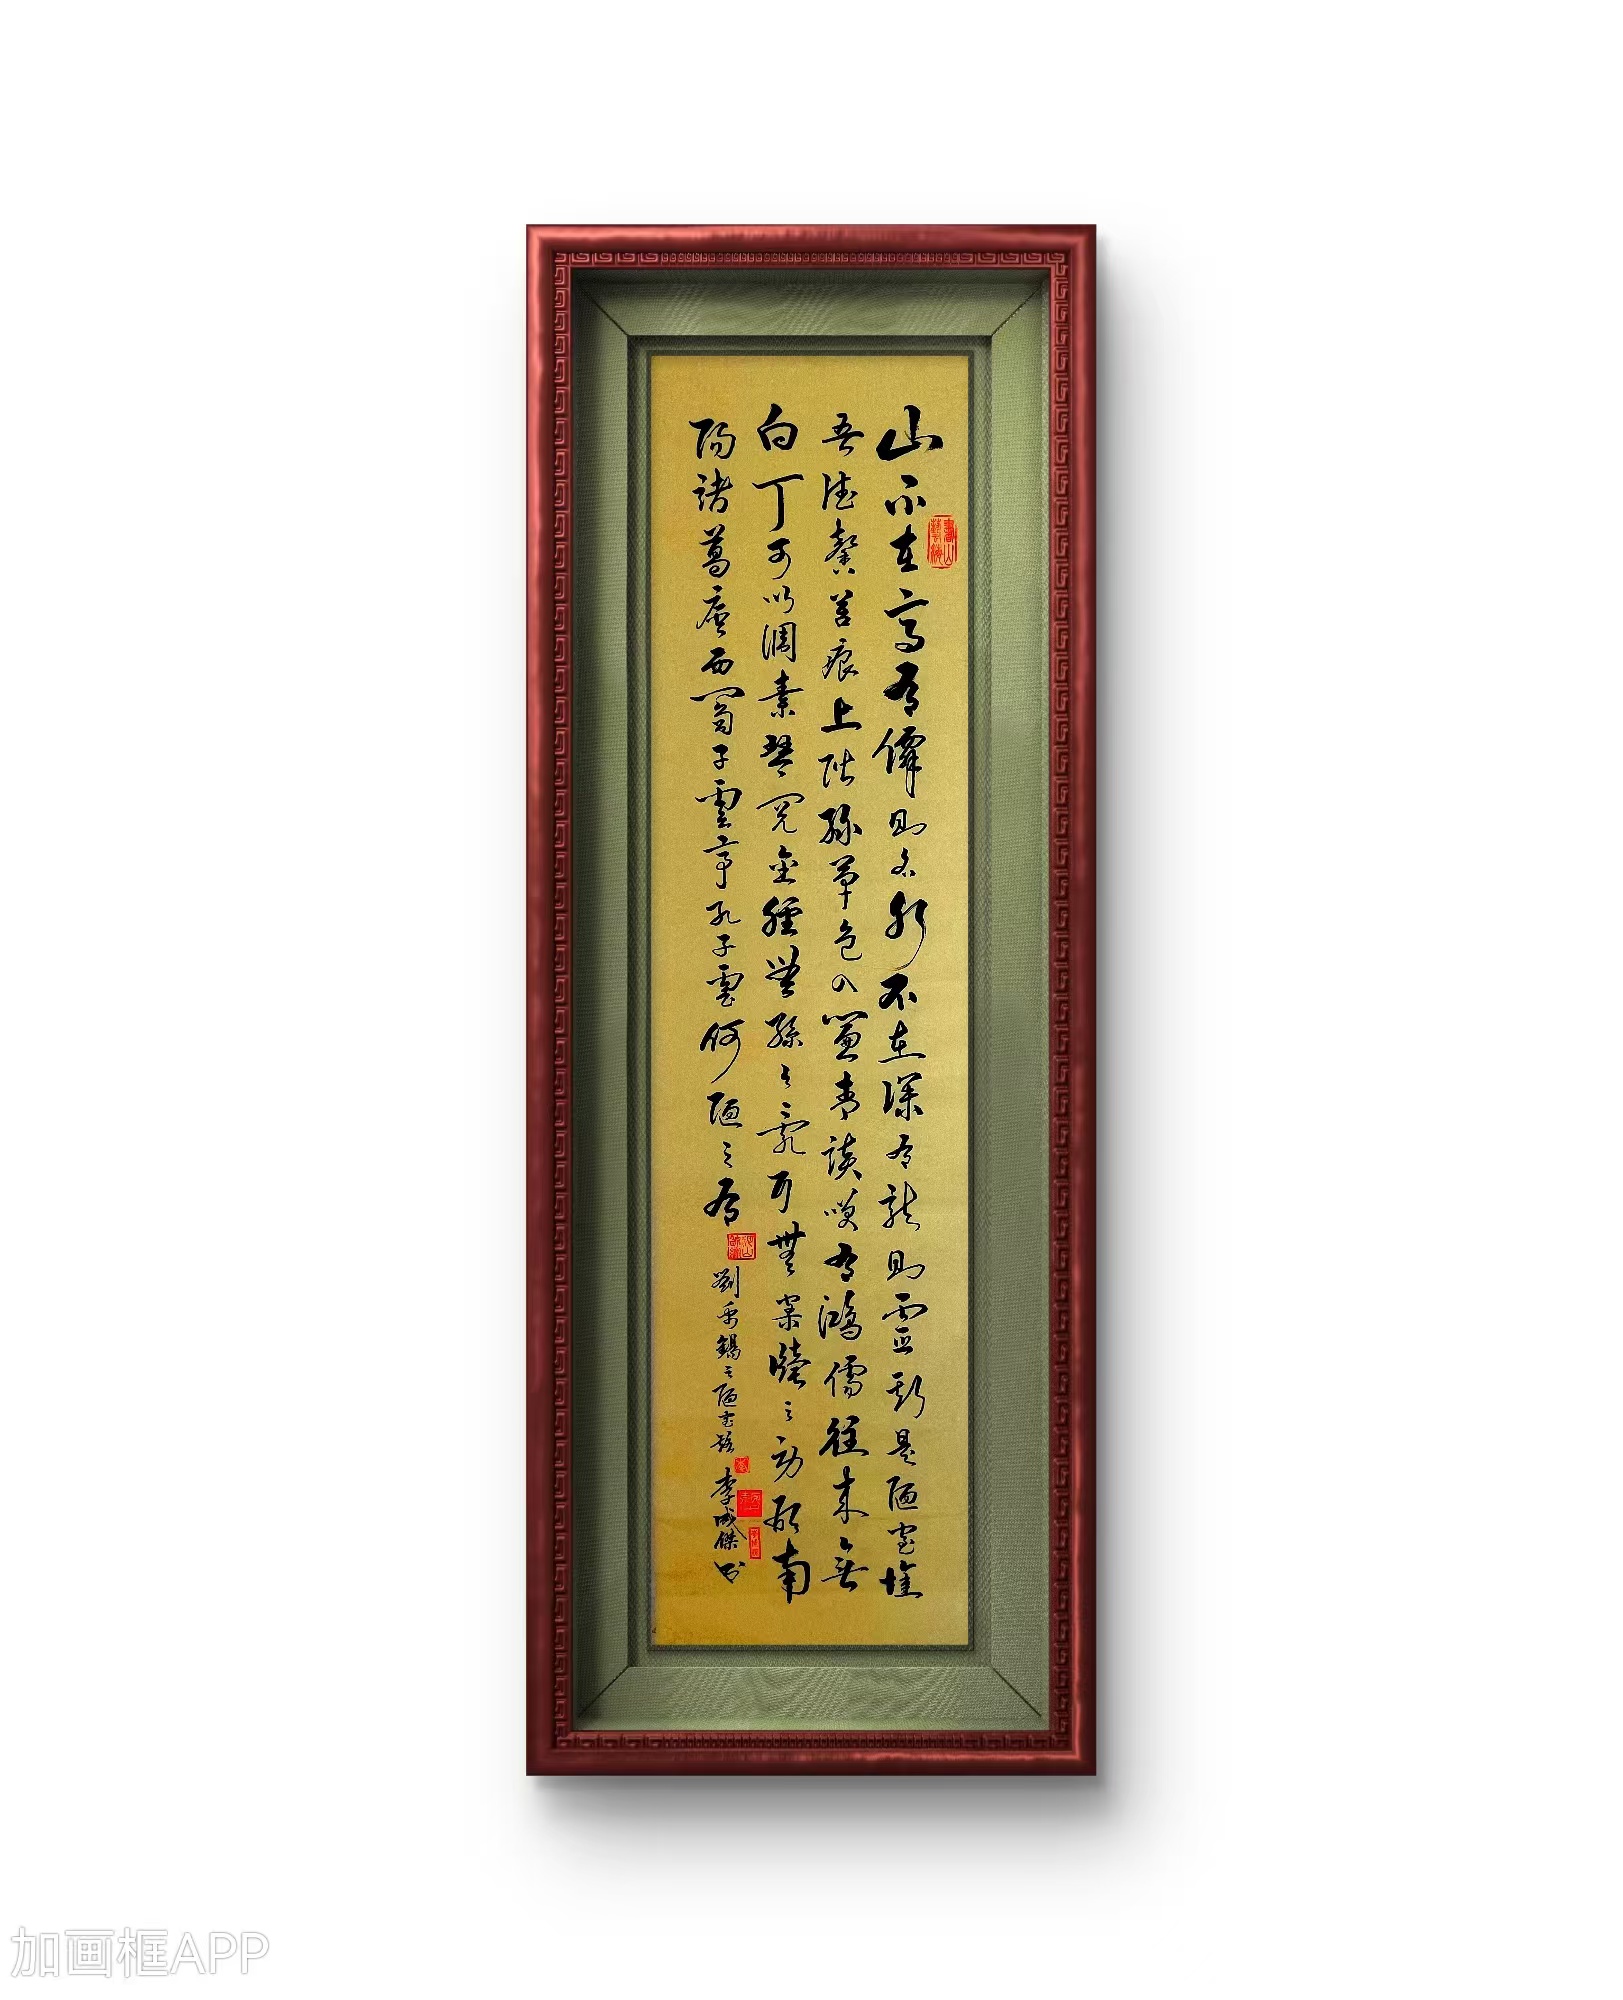 山不在高有僊則名水不在深有龍則靈斯是陋室惟
吾德馨苔痕上階綠草色入簾青談笑有鴻儒往來無
白丁可以調素琴閱金經無絲竹之亂耳無案牘之勞形南
陽諸葛廬西蜀子雲亭孔子雲何陋之有
劉禹錫之陋室銘 李成傑书
加画框APP